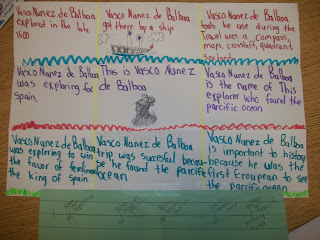 Vasco Nunez de Balboa
explored in the late
1500
Vasco Nunez de Balboa
got there by a ship
Vasco Nunez de Balboa
tools he use during the
travel was a compass,
maps, crosstaff, quadrant,
Vasco Nunez de Balboa
was exploring for
spain.
This is Vasco Nunez
de Balboa
Vasco Nunez de Balboa
is the name of This
explorer who found the
parcific ocean
Vasco Nunez de Balboa
was exploring to win
the favor of ferdinan
the king of spain
Vasco Nunez de Balboa
trip was succesful becau-
se he found the parcific
ocean
Vasco Nunez de Balboa
is important to history
because he was the
first Eroupean to see
the parcific ocean